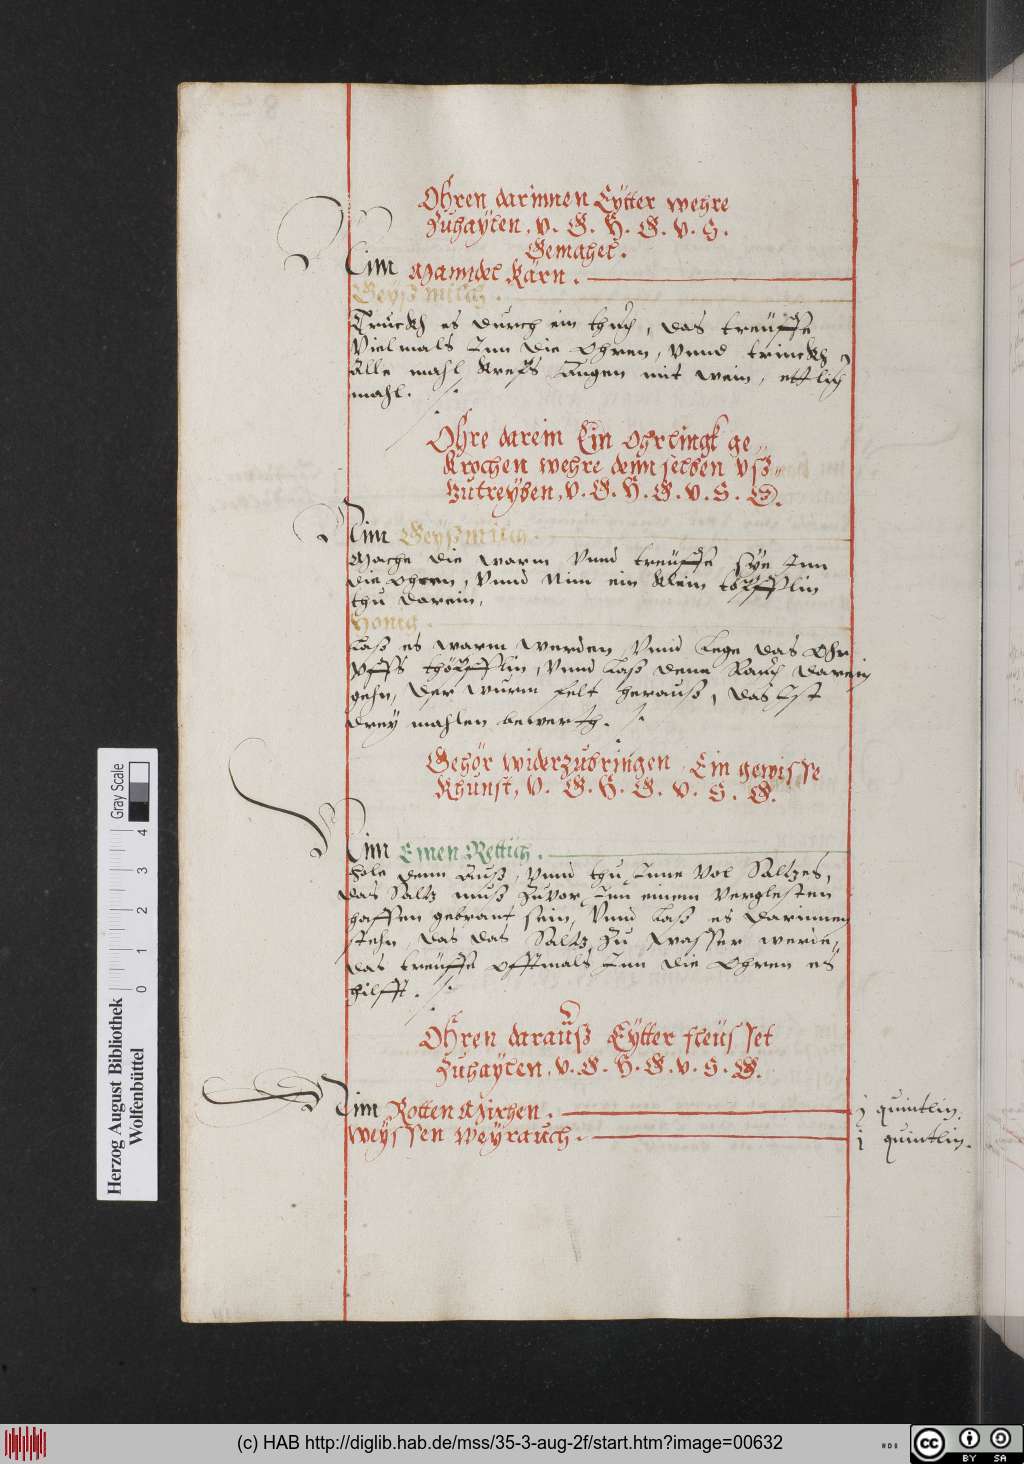 Ohren darinnen Eÿtter wehre
Zuhaÿlen, v. G. H. G. v. S.
Gemahel.
Nim Manndel Kärn.
Geÿß milch.
Truckh es durch ein thuch, das treüffe
Vielmals Inn die Ohren, Vnnd trinckh
Alle mahl Kreßs Augen mit wein, ettlich
mahl.
Ohre darein Ein Ohrlingk ge„
Krochen wehre denn selben Vß„
Zutreÿben, v. G. H. G. v. S. G.
Nim Geÿßmilch.
Mache die warm Vnnd treüffe sÿe Inn
die Ohren, Vnnd Nim ein Klein töpfflin
thu darein,
Honig.
Laß es warm werden, Vnnd Lege das Ohr
Vffs thöpfflin, Vnnd Laß denn Rauch darein
gehn, Der wurm felt herauß, das Ist
dreÿ mahlen bewerth.
Gehör widerzubringen Ein gewisse
Khunst, V. G. H. G. v. S. G.
Nim Einen Rettich.
Hole denn Auß, Vnnd thu Inne Vol Saltzes,
das Saltz muß Zuvor Inn einem Verglesten
haffen gebrant sein, Vnnd Laß es darinnen
stehn, das das Saltz Zu wasser werde,
das treüffe offtmals Inn die Ohren es
hilfft.
Ohren darauß Eÿtter fleüsset
Zuhaÿlen, v. G. H. G. v. S. G.
Nim Rotten Mirhen. j quintlin.
Weÿssen Weÿrauch. j quintlin.
Herzog August Bibliothek
Wolfenbüttel
0 1 2 3 4
Gray Scale
(c) HAB http://diglib.hab.de/mss/35-3-aug-2f/start.htm?image=00632
cc BY SA